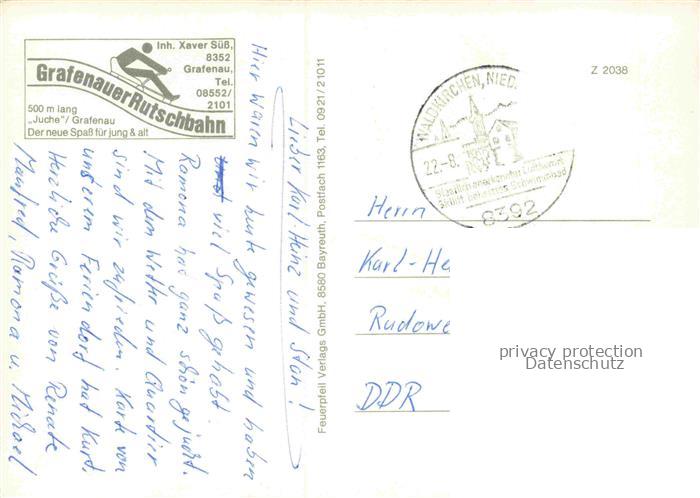 Inh. Xaver Süß,
8352
Grafenau,
Tel.
08552/
2101
Grafenauer Rutschbahn
500 m lang
„Juche"/ Grafenau
Der neue Spaß für jung & alt
Lieber Karl Heinz und Stan!
Hier waren wir heute gewesen und haben
viel Spaß gehabt.
Ramona hat ganz schön gejucht.
Mit dem Wetter und Quartier
sind wir zufrieden. Karte von
unserem Feriendorf hat Kurt.
Herzliche Grüße von Renate
Manfred, Ramona u. Michael
Feuerpfeil Verlags GmbH, 8580 Bayreuth, Postfach 1163, Tel. 0921/21011
Z 2038
WALDKIRCHEN, NIED
22.-8.
Staatlich anerkannter Luftkurort
8392
Herrn
Karl-He
Rudowe
DDR
privacy protection
Datenschutz